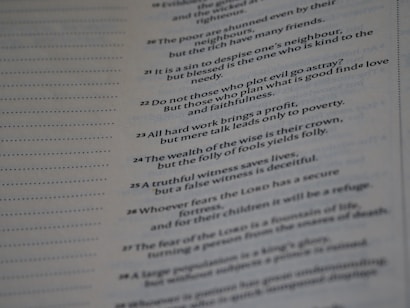 19 Evildoers
and the wicked at
righteous.
20 The poor are shunned even by their
neighbours,
but the rich have many friends.
21 It is a sin to despise one's neighbour,
but blessed is the one who is kind to the
needy.
22 Do not those who plot evil go astray?
But those who plan what is good find love
and faithfulness.
23 All hard work brings a profit,
but mere talk leads only to poverty.
24 The wealth of the wise is their crown,
but the folly of fools yields folly.
25 A truthful witness saves lives,
but a false witness is deceitful.
26 Whoever fears the LORD has a secure
fortress,
and for their children it will be a refuge.
27 The fear of the LORD is a fountain of life,
turning a person from the snares of death.
28 A large population is a king's glory,
but without subjects a prince is ruined.
29 Whoever is patient has great understanding,